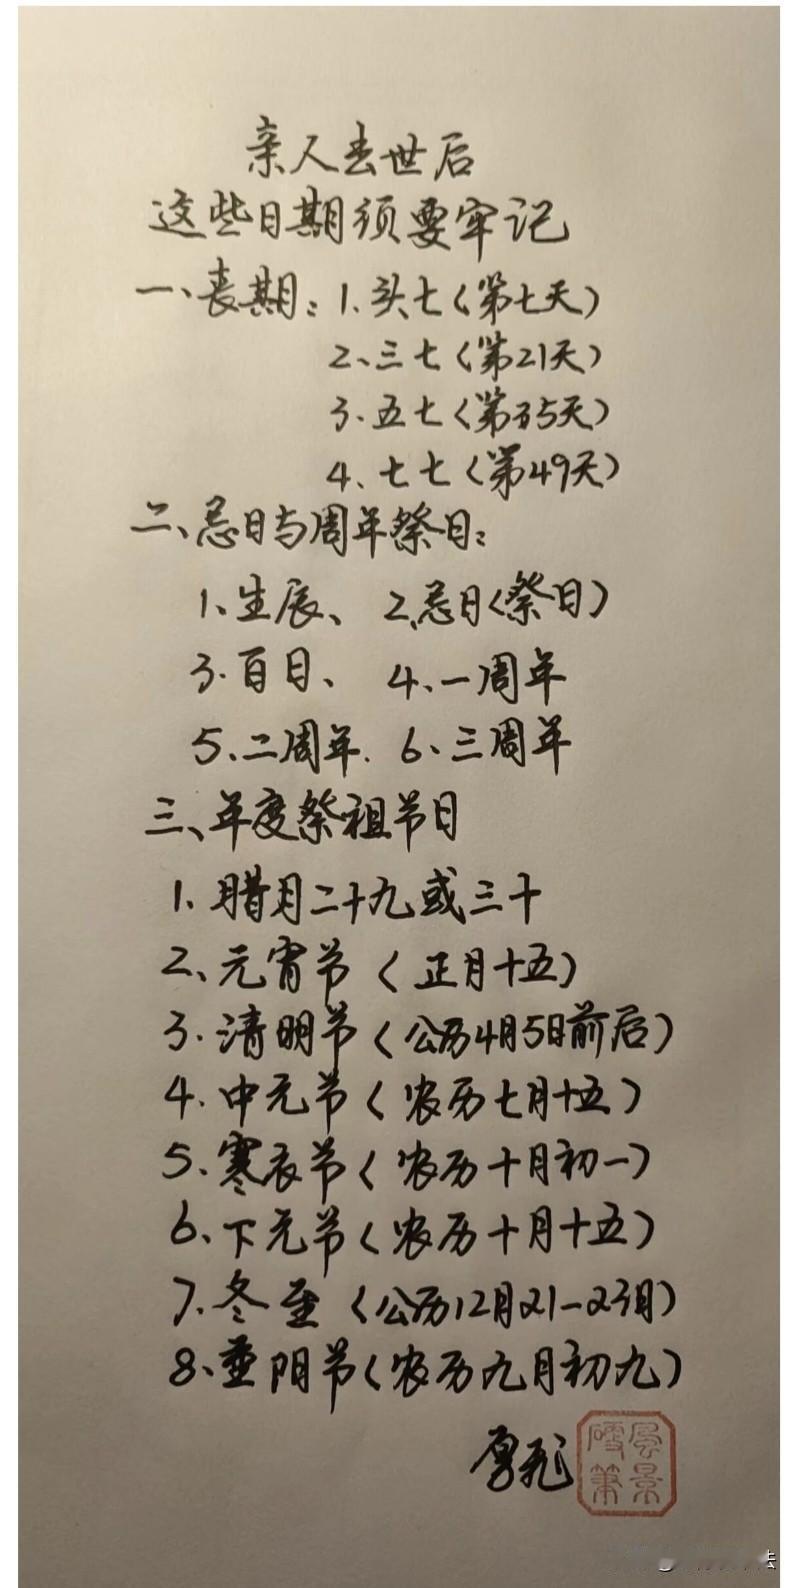 亲人去世后
这些日期须要牢记
一、丧期：1.头七（第七天）
2、三七（第21天）
3.五七（第35天）
4、七七（第49天）
二、忌日与周年祭日：
1、生辰、 2、忌日（祭日）
3.百日、 4、一周年
5、二周年. 6、三周年
三、年度祭祖节日
1.腊月二十九或三十
2、元宵节（正月十五）
3.清明节（公历4月5日前后）
4.中元节（农历七月十五）
5.寒衣节（农历十月初一）
6、下元节（农历十月十五）
7.冬至（公历12月21-23日）
8、重阳节（农历九月初九）
风景
硬笔